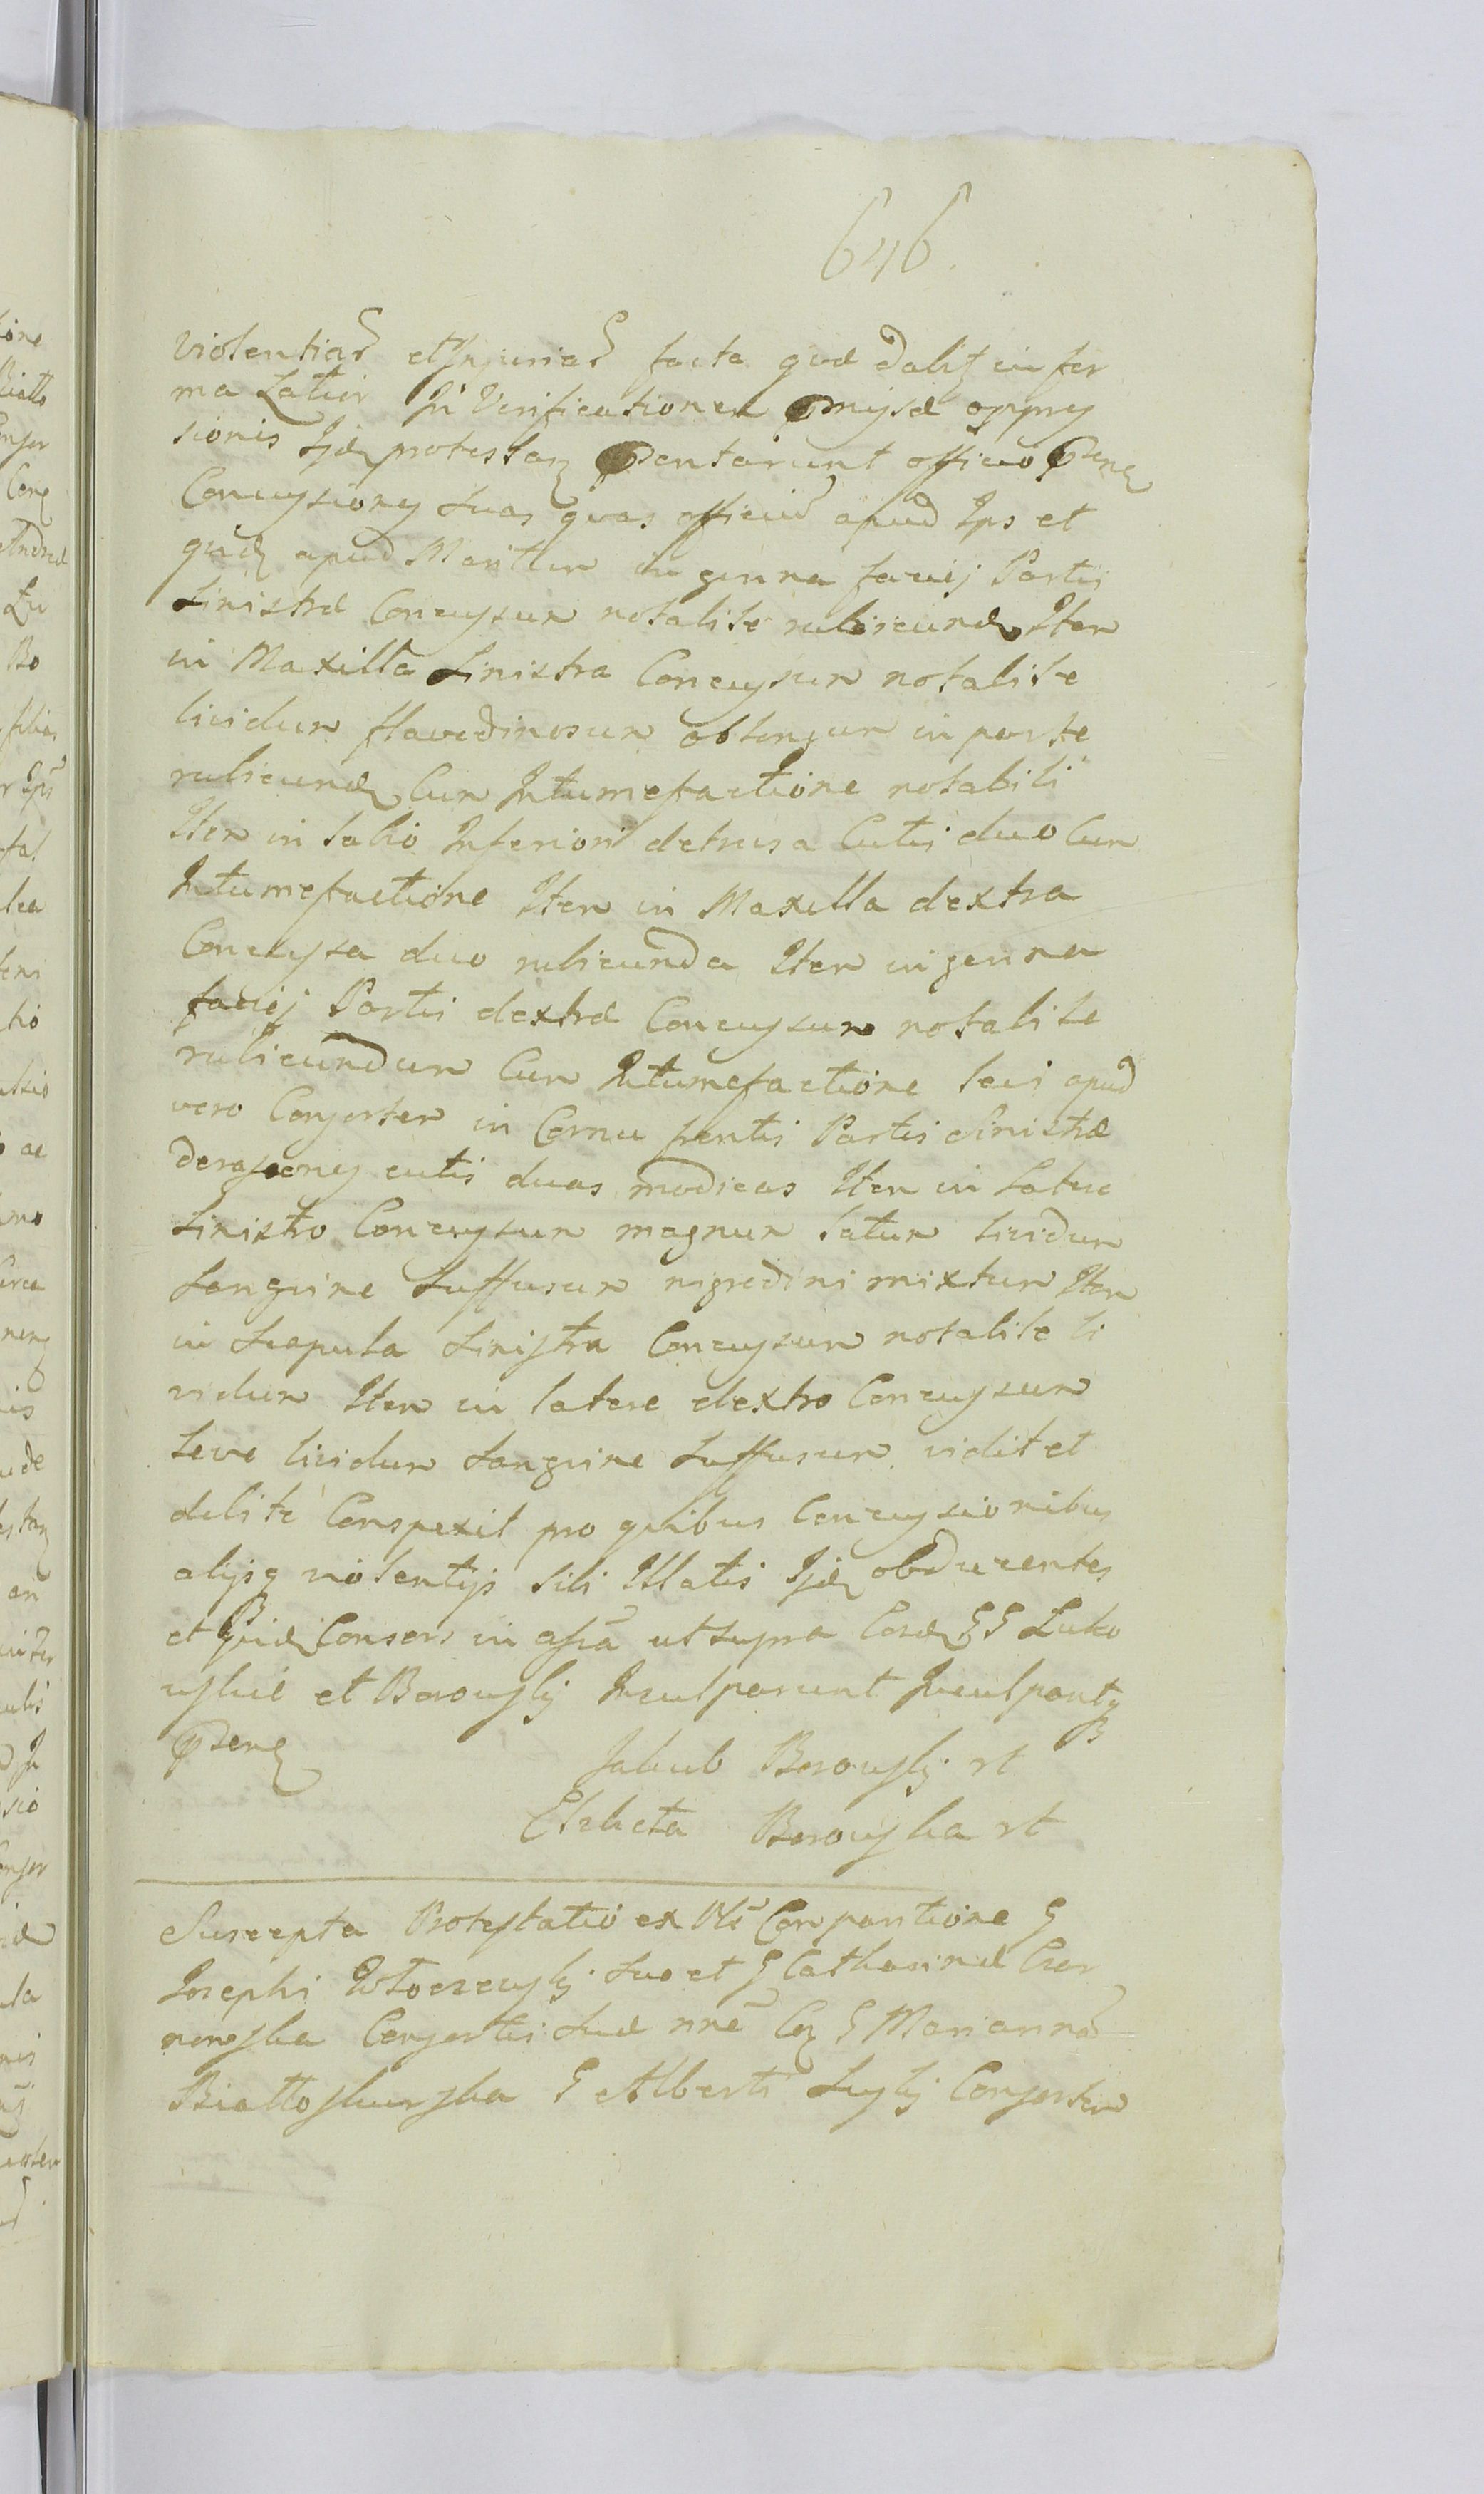 646.
violentias et Injurias facta quæ dabitʒ in for
ma Latiori In Verificationem pmissæ oppres
sionis Ijdē protestan psentarunt officio psenē
Concussiones suas quas officiū apud Ips et
quidē apud Maritum in genna faciej Partis
sinistræ Concussum notabile rubicundū Item
in Maxilla sinistra Concussum notabile
lividum flavedinosum oblongum in parte
rubicundū Cum Intumefactione notabili
Item in labio Inferiori detrusa Cutis duo Cum
Intumefactione Item in Maxilla dextra
Concussa duo rubicunda Item in genna
faciej Partis dextræ Concussum notabile
rubicundum Cum Intumefactione levi apud
vero Consortem in Cornu frontis Partis Sinistræ
derasiones cutis duas modicas Item in Latere
sinistro Concussum magnum latum lividum
sanguine suffusum nigredini mixtum Item
in scapula sinistra Concussum notabile li
vidum Item in latere dextro Concussum
leve lividum sanguine suffusum vidit et
debite Conspexit pro quibus Concussionibus
alijsq violentijs sibi Illatis Ijdē obducentes
et quidē Consors in assā ut supra Cordē GG Luko
wskie et Borowskj Inculparunt Inculpantq
psenē
Jakub Borowskj rt
Elzbieta Borowska rt
Suscepta Protestatio ex Obl Comparitione G
Josephi Wtoczewskj suo et G Catharinæ Czar
nowska Consortis suæ nne Coʒ G Mariannā
Białłoskurska G Alberti Suskj Consortem